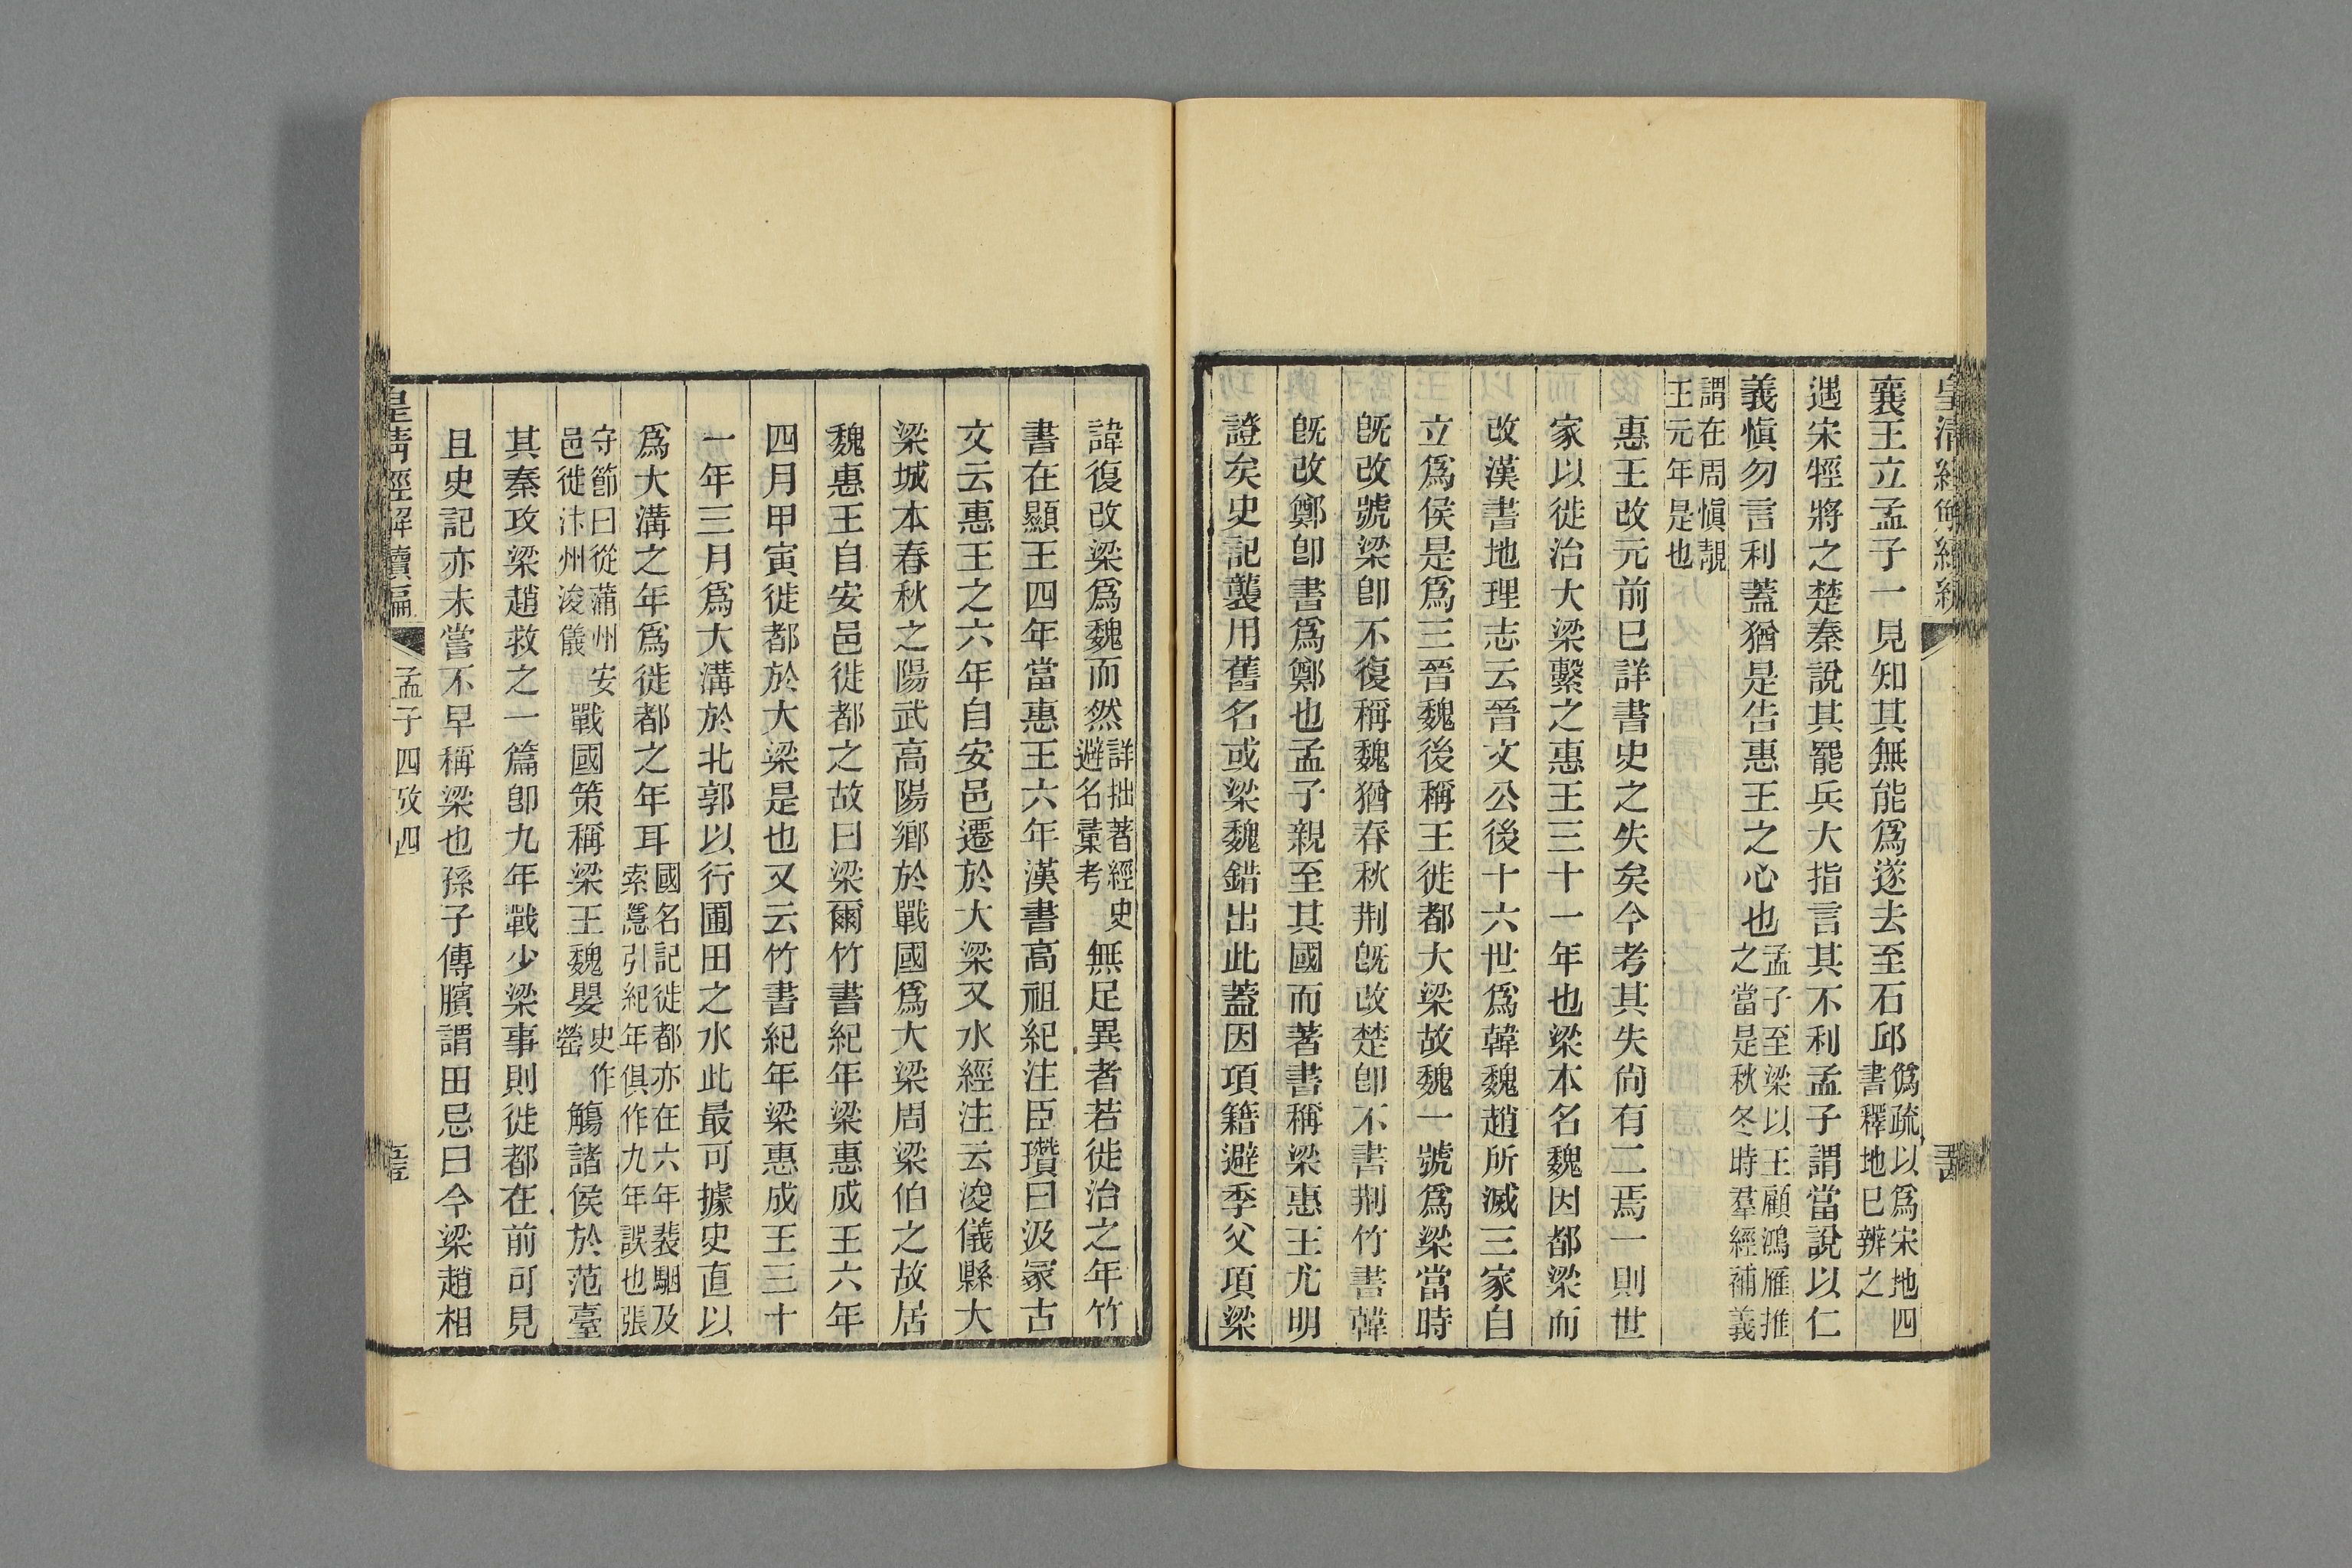 襄王立孟子一見知其無能爲遂去至石邱僞疏以爲宋地四書釋地已辨之
遇宋牼將之楚秦說其罷兵大指言其不利孟子謂當說以仁
義愼勿言利蓋猶是告惠王之心也孟子至梁以王顧鴻雁推之當是秋冬時羣經補義
謂在周愼靚王元年是也
惠王改元前已詳書史之失矣今考其失尙有二焉一則世
家以徙治大梁繫之惠王三十一年也梁本名魏因都梁而
改漢書地理志云晉文公後十六世爲韓魏趙所滅三家自
立爲侯是爲三晉魏後稱王徙都大梁故魏一號爲梁當時
旣改號梁卽不復稱魏猶春秋荆旣改楚卽不書荆竹書韓
旣改鄭卽書爲鄭也孟子親至其國而著書稱梁惠王尤明
證矣史記襲用舊名或梁魏錯出此蓋因項籍避季父項梁
諱復改梁爲魏而然詳拙著經史避名彙考無足異者若徙治之年竹
書在顯王四年當惠王六年漢書高祖紀注臣瓚曰汲冢古
文云惠王之六年自安邑遷於大梁又水經注云浚儀縣大
梁城本春秋之陽武高陽鄉於戰國爲大梁周梁伯之故居
魏惠王自安邑徙都之故曰梁爾竹書紀年梁惠成王六年
四月甲寅徙都於大梁是也又云竹書紀年梁惠成王三十
一年三月爲大溝於北郭以行圃田之水此最可據史直以
爲大溝之年爲徙都之年耳國名記徙都亦在六年裴駰及索隱引紀年俱作九年誤也張
守節曰從蒲州安邑徙汴州浚儀戰國策稱梁王魏嬰史作罃觴諸侯於范臺
其秦攻梁趙救之一篇卽九年戰少梁事則徙都在前可見
且史記亦未嘗不早稱梁也孫子傳臏謂田忌曰今梁趙相
皇清經解續編
孟子四攷四